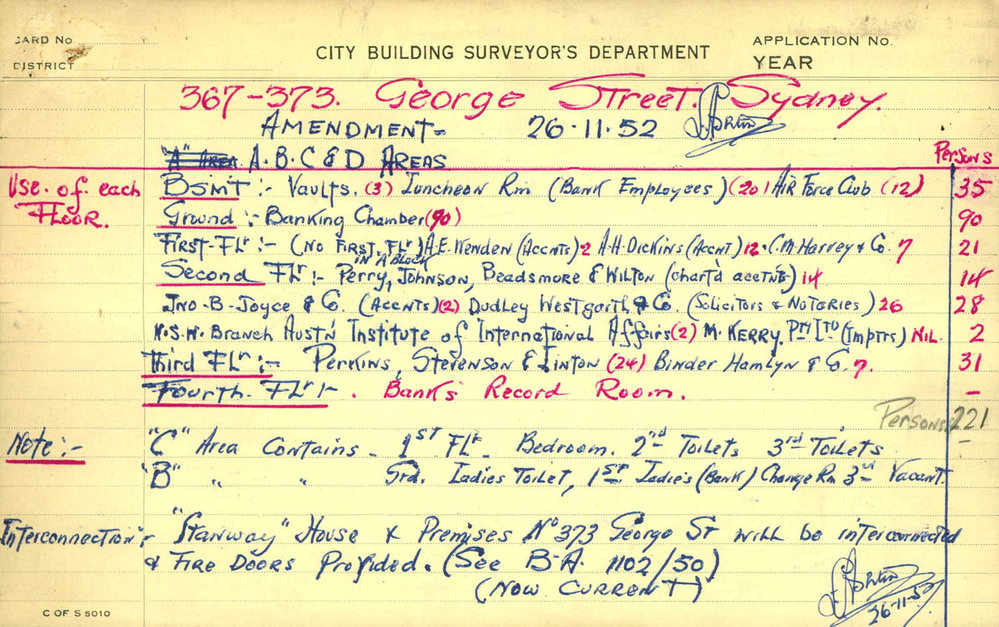 CARD No.
CITY BUILDING SURVEYOR'S DEPARTMENT
APPLICATION No.
DISTRICT
YEAR
367-373. George Street. Sydney.
AMENDMENT= 26.11.52
"A" AREA A.B.C & D AREAS
Persons
Use of each FLOOR.
BSMT:- Vaults. (3) Luncheon Rm (Bank Employees) (20) Air Force Club (12) 35
Ground:- Banking Chamber (90) 90
First-Flr:- (No First Flr A.E. Wenden (Accnts) 2 A.H. Dickins (Accnt) 12. C.M. Harvey & Co. 7 21
in A Block)
Second Flr:- Perry, Johnson, Beadsmore & Wilton (chart'd acctnts) 14 14
Jno-B-Joyce & Co. (Accnts) (2) Dudley Westgarth & Co. (Solicitors & Notaries) 26 28
N.S.W. Branch Aust'n Institute of International Affairs (2) M. Kerry Pty Ltd (Imptrs) NIL. 2
Third Flr:- Perkins, Stevenson & Linton (24) Binder Hamlyn & Co. 7. 31
Fourth Flr:- . Bank's Record Room. -
Persons 221
Note:- "C" Area Contains - 1ST FLr Bedroom. 2nd Toilets 3rd Toilets
"B" " " Grd. Ladies Toilet, 1ST Ladie's (Bank) Change Rm 3rd Vacant.
Interconnection:- "Stanway" House & Premises No 373 George St will be interconnected
& Fire Doors Provided. (See B.A. 1102/50)
(Now CURRENT)
26-11-52
C OF S 5010